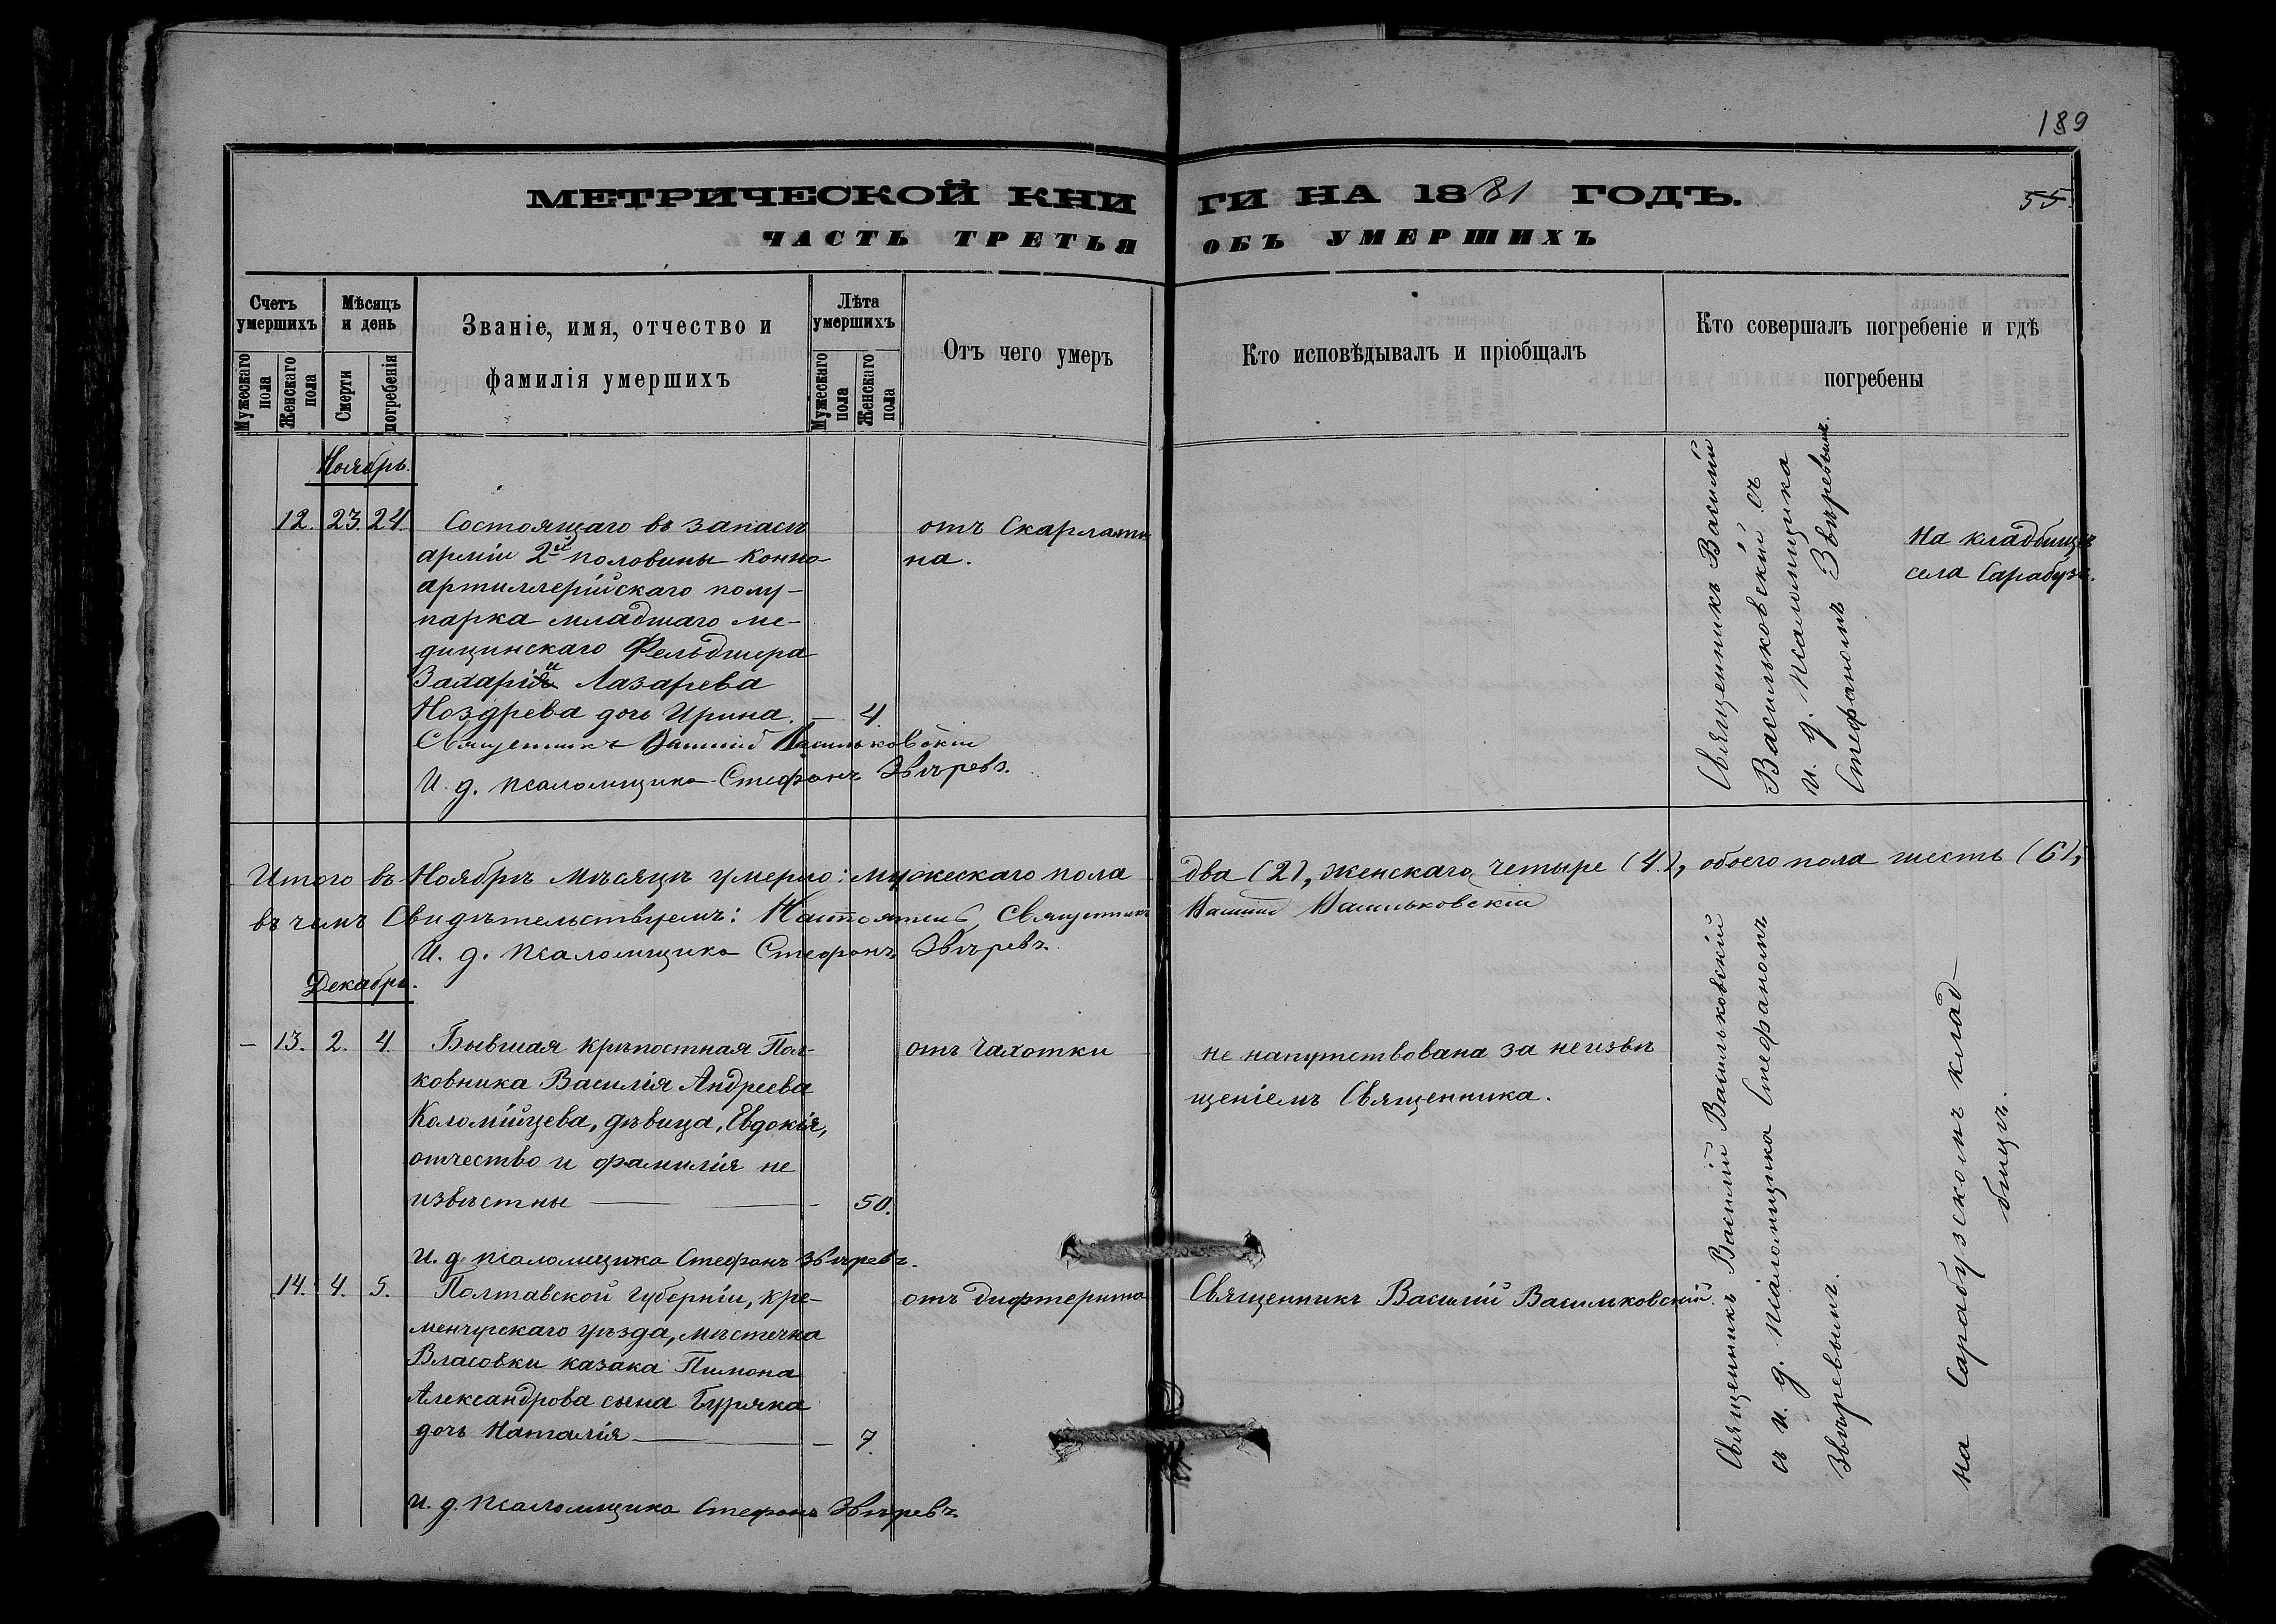 189
МЕТРИЧЕСКОЙ КНИ ГИ НА 1881 ГОДЪ.
55.
ЧАСТЬ ТРЕТЬЯ ОБЪ УМЕРШИХЪ
Счетъ умершихъ
Мужескаго пола
Женскаго пола
Мѣсяцъ и день
Смерти
погребенія
Званіе, имя, отчество и
фамилія умершихъ
Лѣта умершихъ
Мужескаго пола
Женскаго пола
Отъ чего умеръ
Кто исповѣдывалъ и пріобщалъ
Кто совершалъ погребеніе и гдѣ
погребены
Ноябрь.
12. 23. 24. Состоящаго въ запасѣ
арміи 2й половины Конно-
артиллерійскаго полу-
парка младшаго ме-
дицинскаго Фельдшера
Захаріи Лазарева
Ноздрева дочь Ирина. — 4.
отъ Скарлати
на.
Священникъ Василій
Васильковскій съ
и. д. Псаломщика
Стефаномъ Звѣревымъ.
На кладбищѣ
села Сарабузъ.
Священникъ Василій Васильковскій
И. д. псаломщика Стефанъ Звѣревъ.
Итого въ Ноябрѣ мѣсяцѣ умерло: мужескаго пола два (2), женскаго четыре (4), обоего пола шесть (6),
въ чемъ Свидѣтельствуемъ: Настоятель, Священникъ Василій Васильковскій
И. д. Псаломщика Стефанъ Звѣревъ.
Декабрь.
— 13. 2. 4. Бывшая крѣпостная Пол-
ковника Василія Андреева
Коломійцева, дѣвица, Евдокія,
отчество и фамилія не
извѣстны — — 50.
отъ Чахотки
не напутствована за неизвѣ
щеніемъ Священника.
И. д. псаломщика Стефанъ Звѣревъ.
14. 4. 5. Полтавской Губерніи, кре-
менчугскаго уѣзда, мѣстечка
Власовки казака Пимона
Александрова сына Буряка
дочь Наталія — — 7.
отъ Дифтерита
Священникъ Василій Васильковскій.
Священникъ Василій Васильковскій
съ и. д. Псаломщика Стефаномъ
Звѣревымъ.
На Сарабузскомъ клад-
бищѣ.
И. д. Псаломщика Стефанъ Звѣревъ